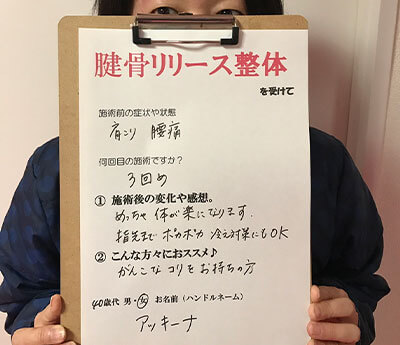 腱骨リリース整体
を受けて
施術前の症状や状態
肩こり 腰痛
何回目の施術ですか?
3回め
① 施術後の変化や感想。
めっちゃ 体が楽になります。
指先まで ポカポカ 冷え対策にもOK
② こんな方々におススメ♪
がんこな コリを お持ちの方
40歳代 男・女 お名前(ハンドルネーム)
アッキーナ